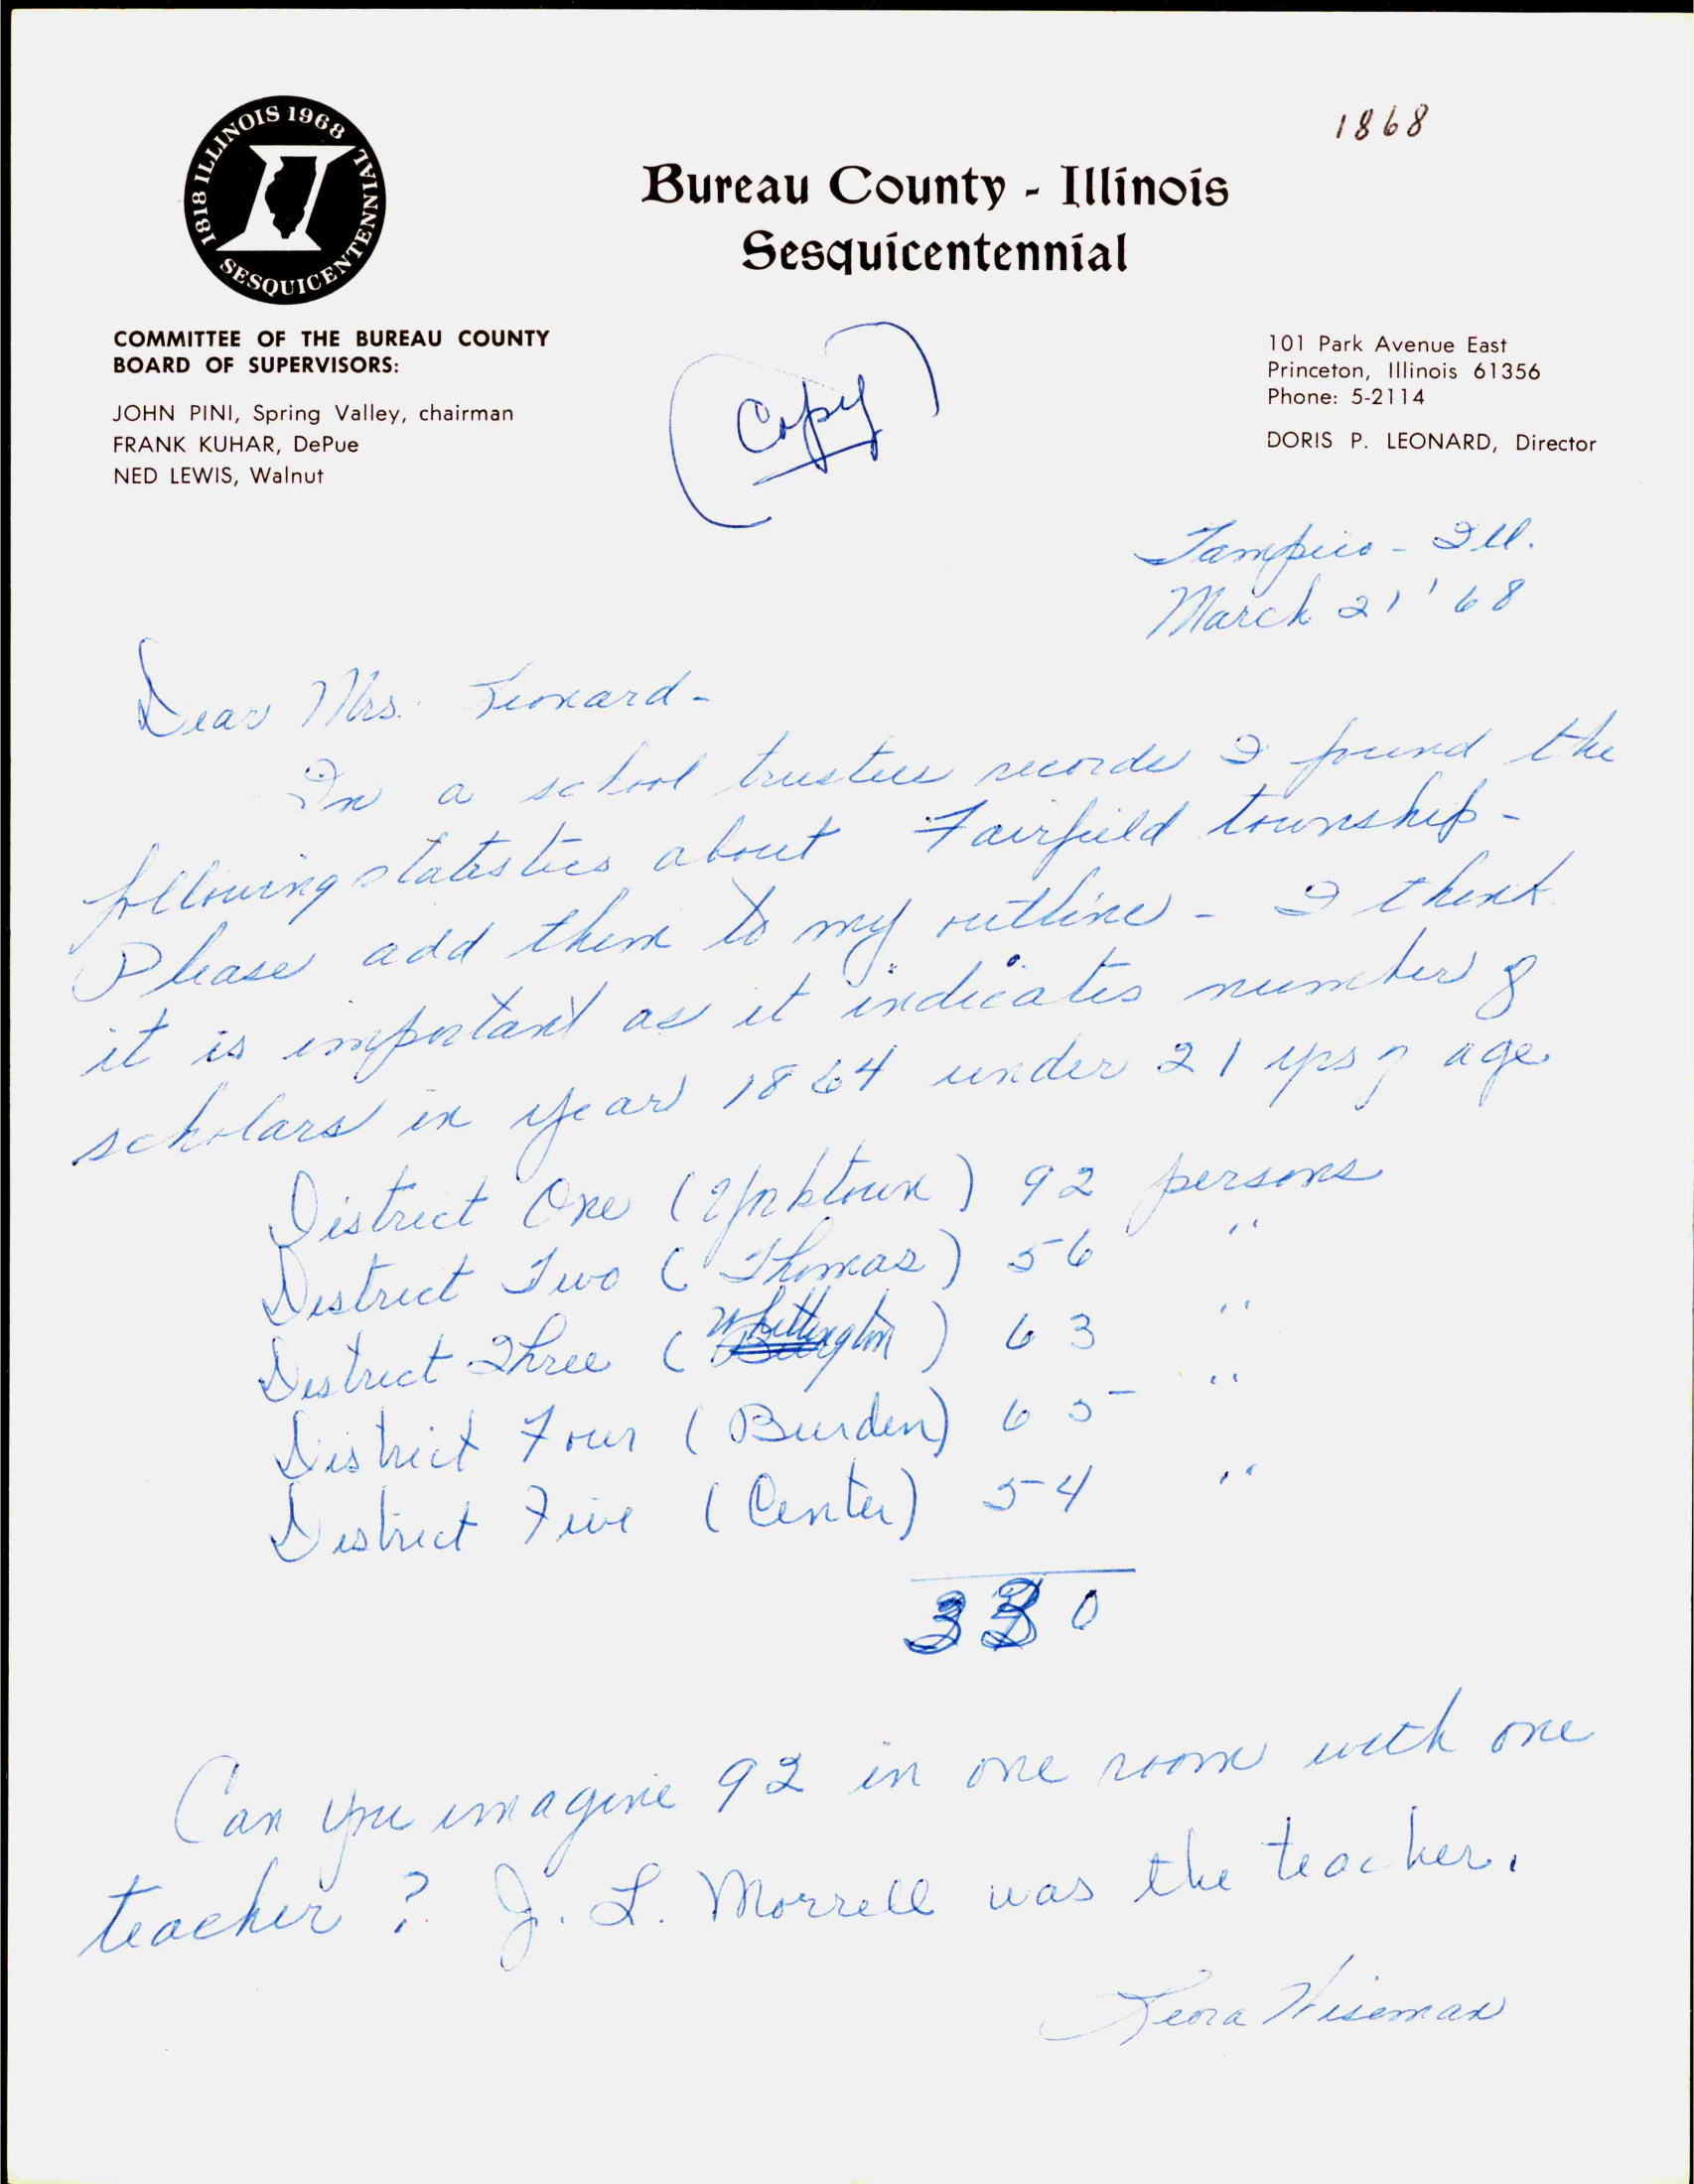 1818 ILLINOIS 1968
SESQUICENTENNIAL
1868
Bureau County - Illinois
Sesquicentennial
COMMITTEE OF THE BUREAU COUNTY
BOARD OF SUPERVISORS:
JOHN PINI, Spring Valley, chairman
FRANK KUHAR, DePue
NED LEWIS, Walnut
(Copy)
101 Park Avenue East
Princeton, Illinois 61356
Phone: 5-2114
DORIS P. LEONARD, Director
Tampico - Ill.
March 21 '68
Dear Mrs. Leonard-
In a school trustees records I found the
following statistics about Fairfield township-
Please add them to my outline - I think
it is important as it indicates number of
scholars in year 1864 under 21 yrs of age
District One (Yorktown) 92 persons
District Two (Thomas) 56 "
District Three (Whittington) 63 "
District Four (Burden) 65 "
District Five (Center) 54 "
330
Can you imagine 92 in one room with one
teacher? J. L. Morrell was the teacher.
Leora Wiseman